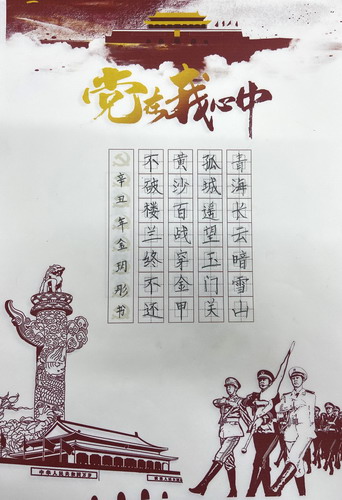 党在我心中
青海长云暗雪山
孤城遥望玉门关
黄沙百战穿金甲
不破楼兰终不还
辛丑年金玥彤书
中华人民共和国万岁